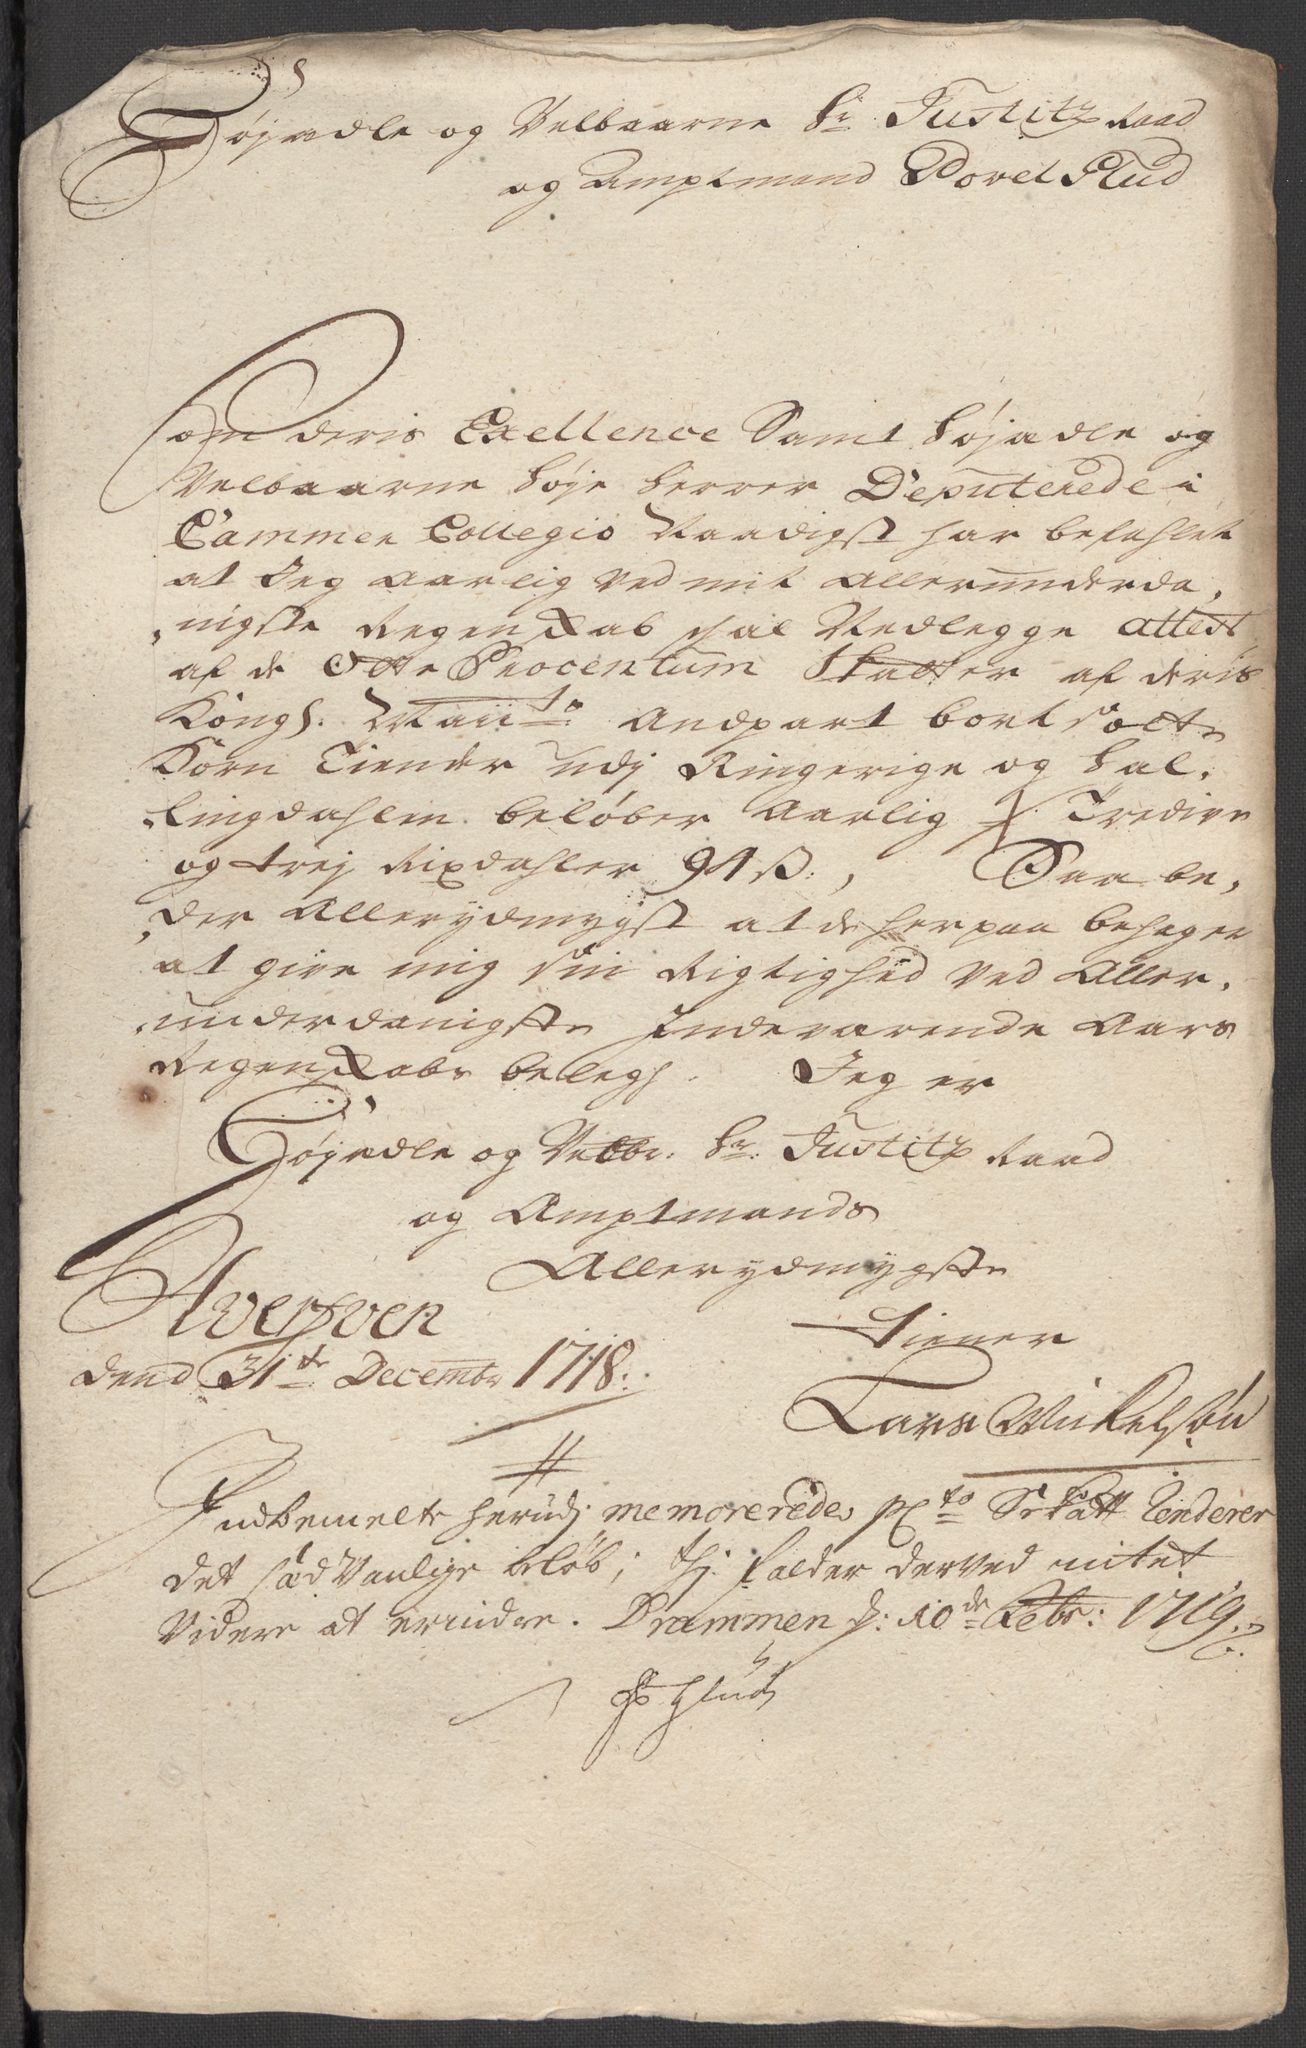 Høyædle og Velbaarne Hr Justitz Raad
og Amptmand Povel Glud
Som deris Exellence Samt Høyædle og
Velbaarne Høye Herrer Deputerede i
Cammer Collegio Naadigst har befahlet
at Jeg Aarlig ved mit Allerunderda,
,nigste Regenskab skal Vedlegge attest
af de Otte Procentum Skatter af deris
Kongl. Maiits Andpart bortsolte
Korn Tiender udj Ringerige og Hal,
,lingdahlen beløber Aarlig Tredive
og trej Rixdahler 91 ß., Saa be,
,der Allerydmygst at de herpaa behager
at give mig sin Rigtighed ved Aller,
,underdanigste Indeværende Aars
Regenskabs belegh. Jeg er
Høyædle og Velbr. Hr. Justitz Raad
og Amptmands
Allerydmygste
Tiener
dend 31te Decembr 1718.
Lars Mickelsøn
Indbemelte herudj memorerede pCto Skatt
det sædvanlige beløb; thj falder derved intet
Videre at erindre. Drammen d: 10de Febr: 1719.
P Glud